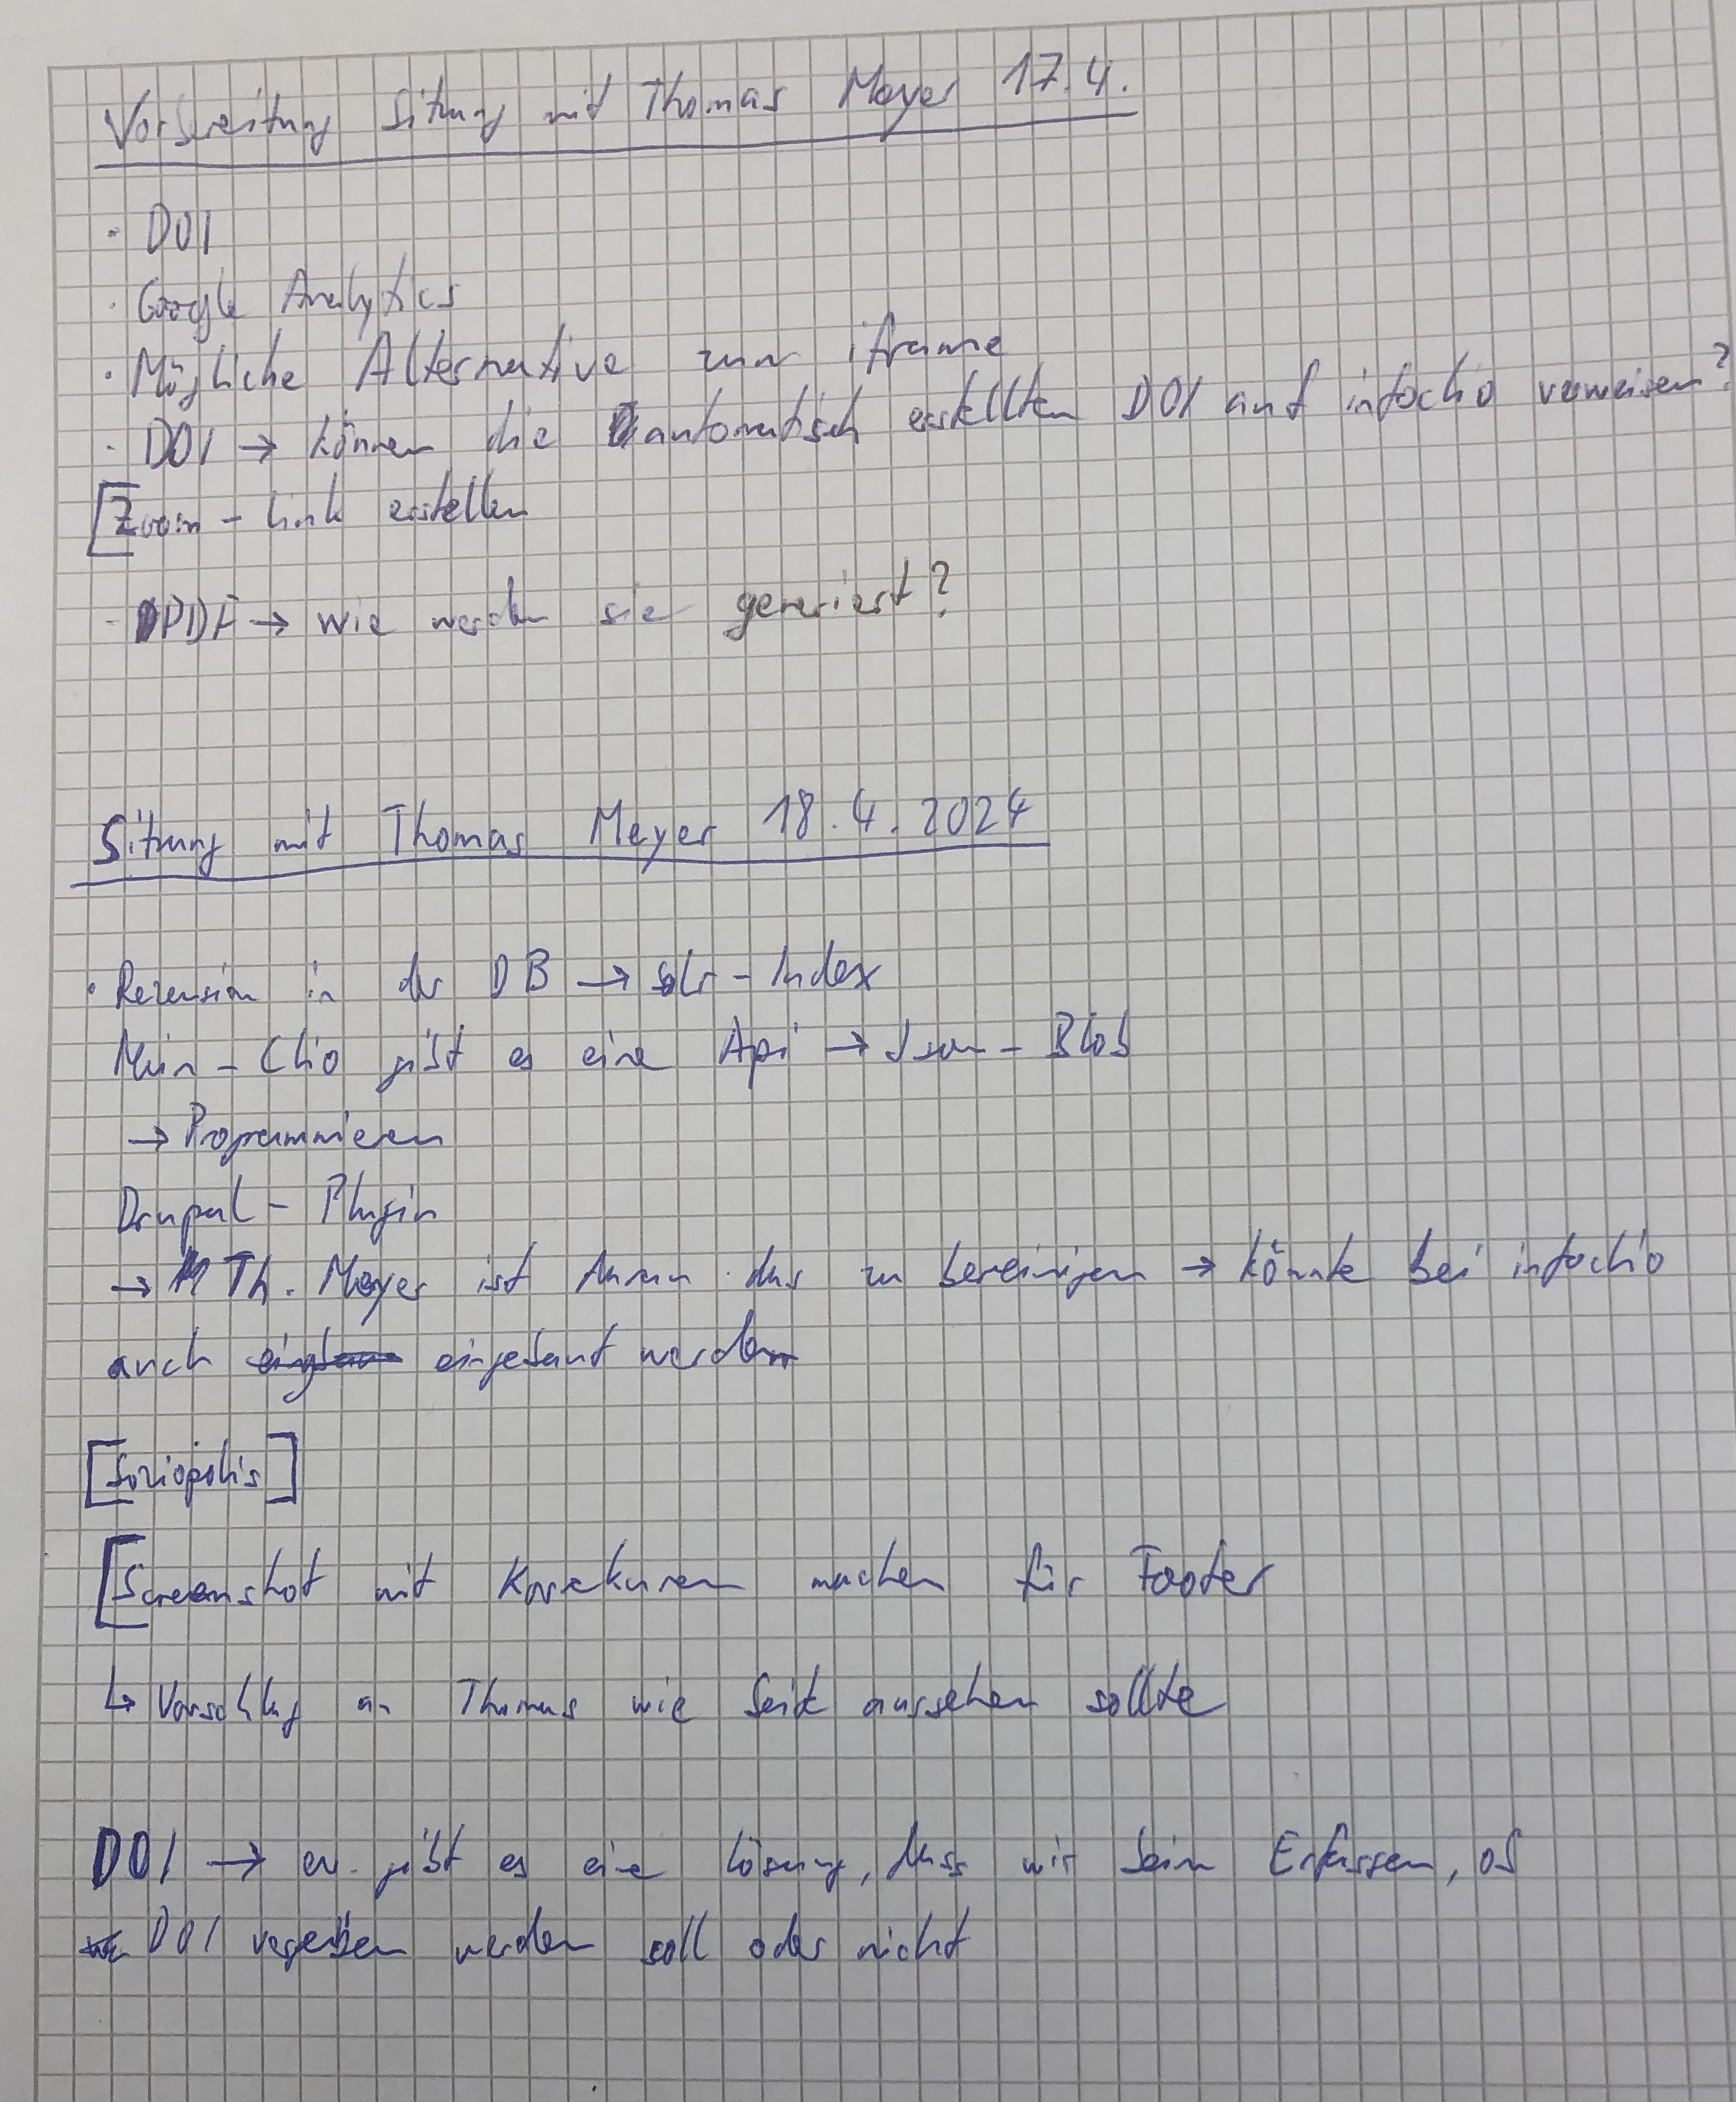 Vorbereitung Sitzung mit Thomas Meyer 17.4.
- DOI
- Google Analytics
- Mögliche Alternative zum iframe
- DOI → können die automatisch erstellten DOI auf infoclio verweisen?
[Zoom-Link erstellen
- PDF → wie werden sie generiert?
Sitzung mit Thomas Meyer 18.4.2024
• Rezension in der DB → solr-Index
Mein-Clio gibt es eine Api → Json-Blob
→ Programmieren
Drupal-Plugin
→ Th. Meyer ist daran das zu bereinigen → könnte bei infoclio
auch eingebaut werden
[Soziopolis]
[Screenshot mit Korrekturen machen für Footer
↳ Vorschlag an Thomas wie Seite aussehen sollte
DOI → ev. gibt es eine Lösung, dass wir beim Erfassen, ob
DOI vergeben werden soll oder nicht